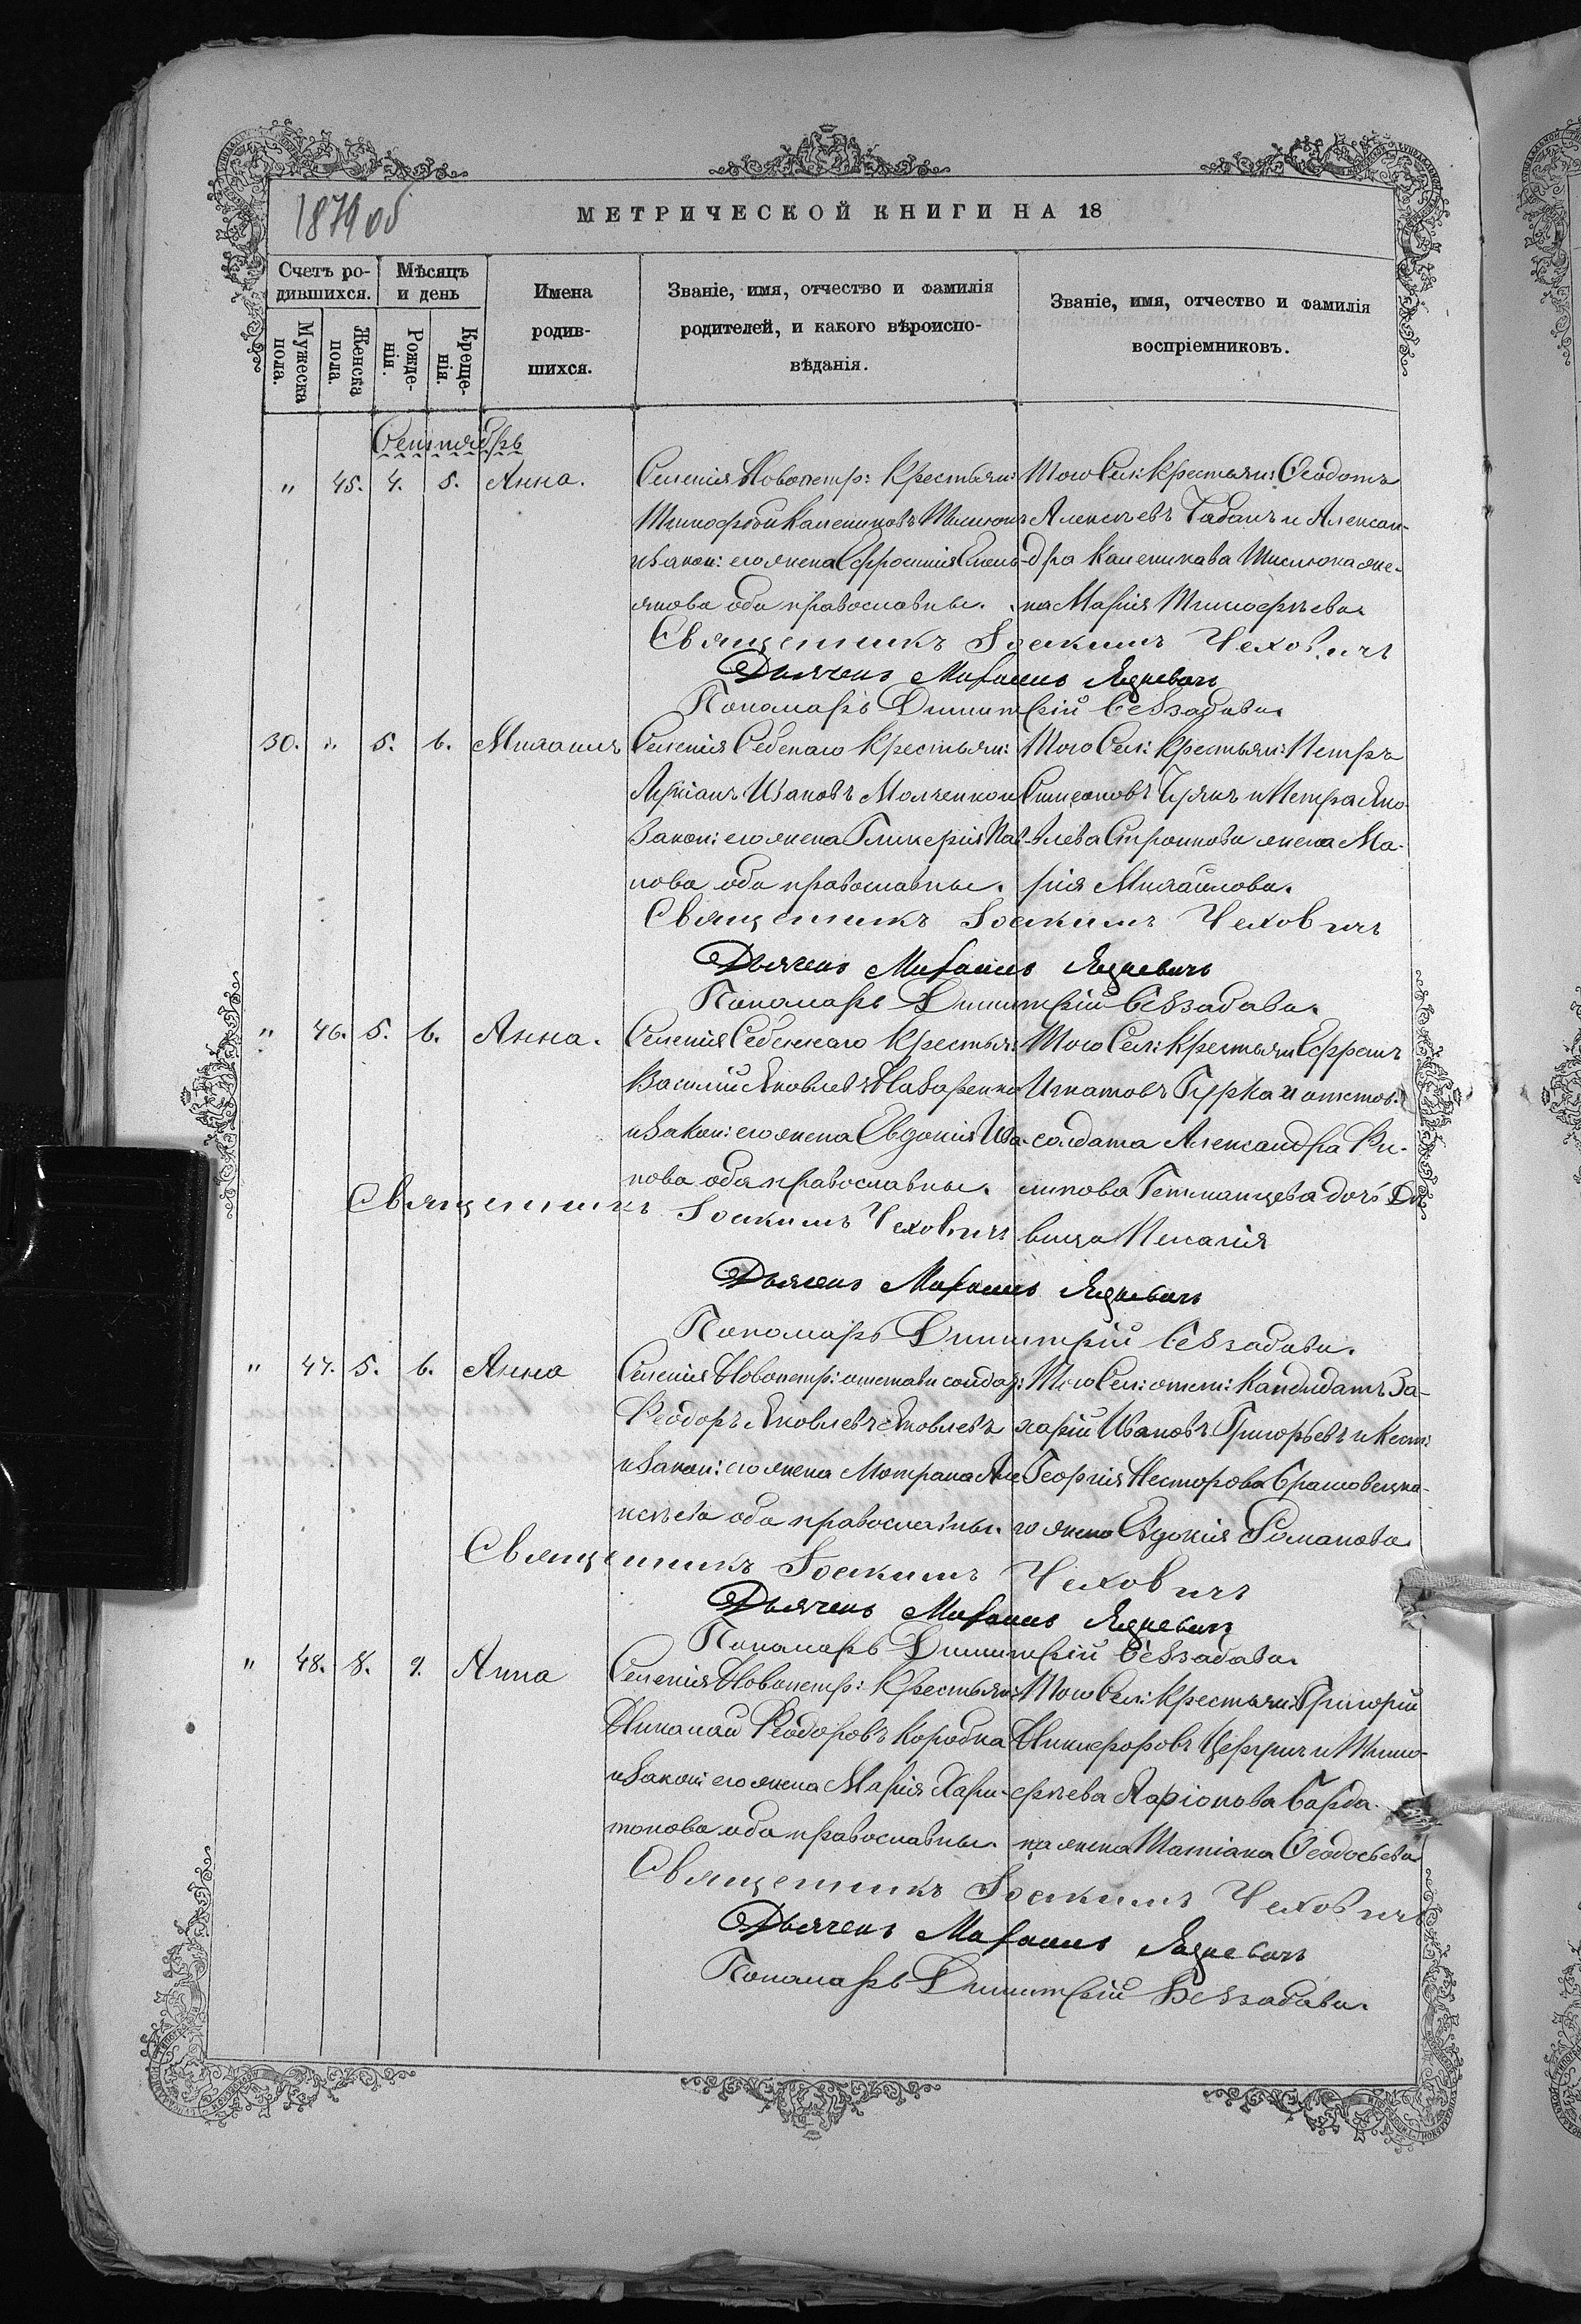 1879 об
МЕТРИЧЕСКОЙ КНИГИ НА 18
Счетъ ро-
дившихся.
Мѣсяцъ
и день
Мужеска
пола.
Женска
пола.
Рожде-
нія.
Креще-
нія.
Имена
родив-
шихся.
Званіе, имя, отчество и фамилія
родителей, и какого вѣроиспо-
вѣданія.
Званіе, имя, отчество и фамилія
воспріемниковъ.
Сентябрь
" 45. 4. 5. Анна.
Селенія Новопетр: Крестьян:
Тимофей Калениковъ
и закон: его жена Ефросинія Емель-
янова оба православные.
Того Сел: Крестьян: Ѳеодотъ
Алексѣевъ Табанъ и Алексан-
дра Каленикова же-
на Марія Тимофѣева
Священникъ Іоакимъ Чеховичъ
Дьячекъ Михаилъ Яцкевичъ
Пономарь Димитрій Беззабава.
30. " 5. 6. Михаилъ
Селенія Себенаго Крестьян:
Лукіанъ Ивановъ Молченко и
Закон: его жена Гликерія
нова оба православные.
Того Сел: Крестьян: Петръ
Симеоновъ и Петра Яко-
влева жена Ма-
рія Михайлова.
Священникъ Іоакимъ Чеховичъ
Дьячекъ Михаилъ Яцкевичъ
Пономарь Димитрій Беззабава.
" 46. 5. 6. Анна.
Селенія Крестьян:
Василій Яковлевъ Назаренко
и Закон: его жена Евдокія Ива-
нова оба православные.
Того Сел: Крестьян Ефремъ
Игнатовъ Гурка и отстав:
солдата Александра Фи-
липова дочь Дѣ-
вица Пелагія
Священникъ Іоакимъ Чеховичъ
Дьячекъ Михаилъ Яцкевичъ
Пономарь Димитрій Беззабава.
" 47. 5. 6. Анна
Селенія Новопетр: отставн солдат:
Ѳеодоръ Яковлевъ Яковлевъ
и Закон: его жена Матрона Але-
ксѣева оба православные.
Того Сел: отст: Кандидатъ За-
харій Ивановъ Григорьевъ и
Георгія Несторова
го жена Евдокія Романова
Священникъ Іоакимъ Чеховичъ
Дьячекъ Михаилъ Яцкевичъ
Пономарь Димитрій Беззабава.
" 48. 8. 9. Анна
Селенія Новопетр: Крестьян:
Николай Ѳеодоровъ Коробка
и Закон: его жена Марія Хари-
тонова оба православные.
Того Сел: Крестьян: Григорій
Никифоровъ и Тимо-
фѣева Ларіонова
жена Татіана Ѳеодосьева
Священникъ Іоакимъ Чеховичъ
Дьячекъ Михаилъ Яцкевичъ
Пономарь Димитрій Беззабава.